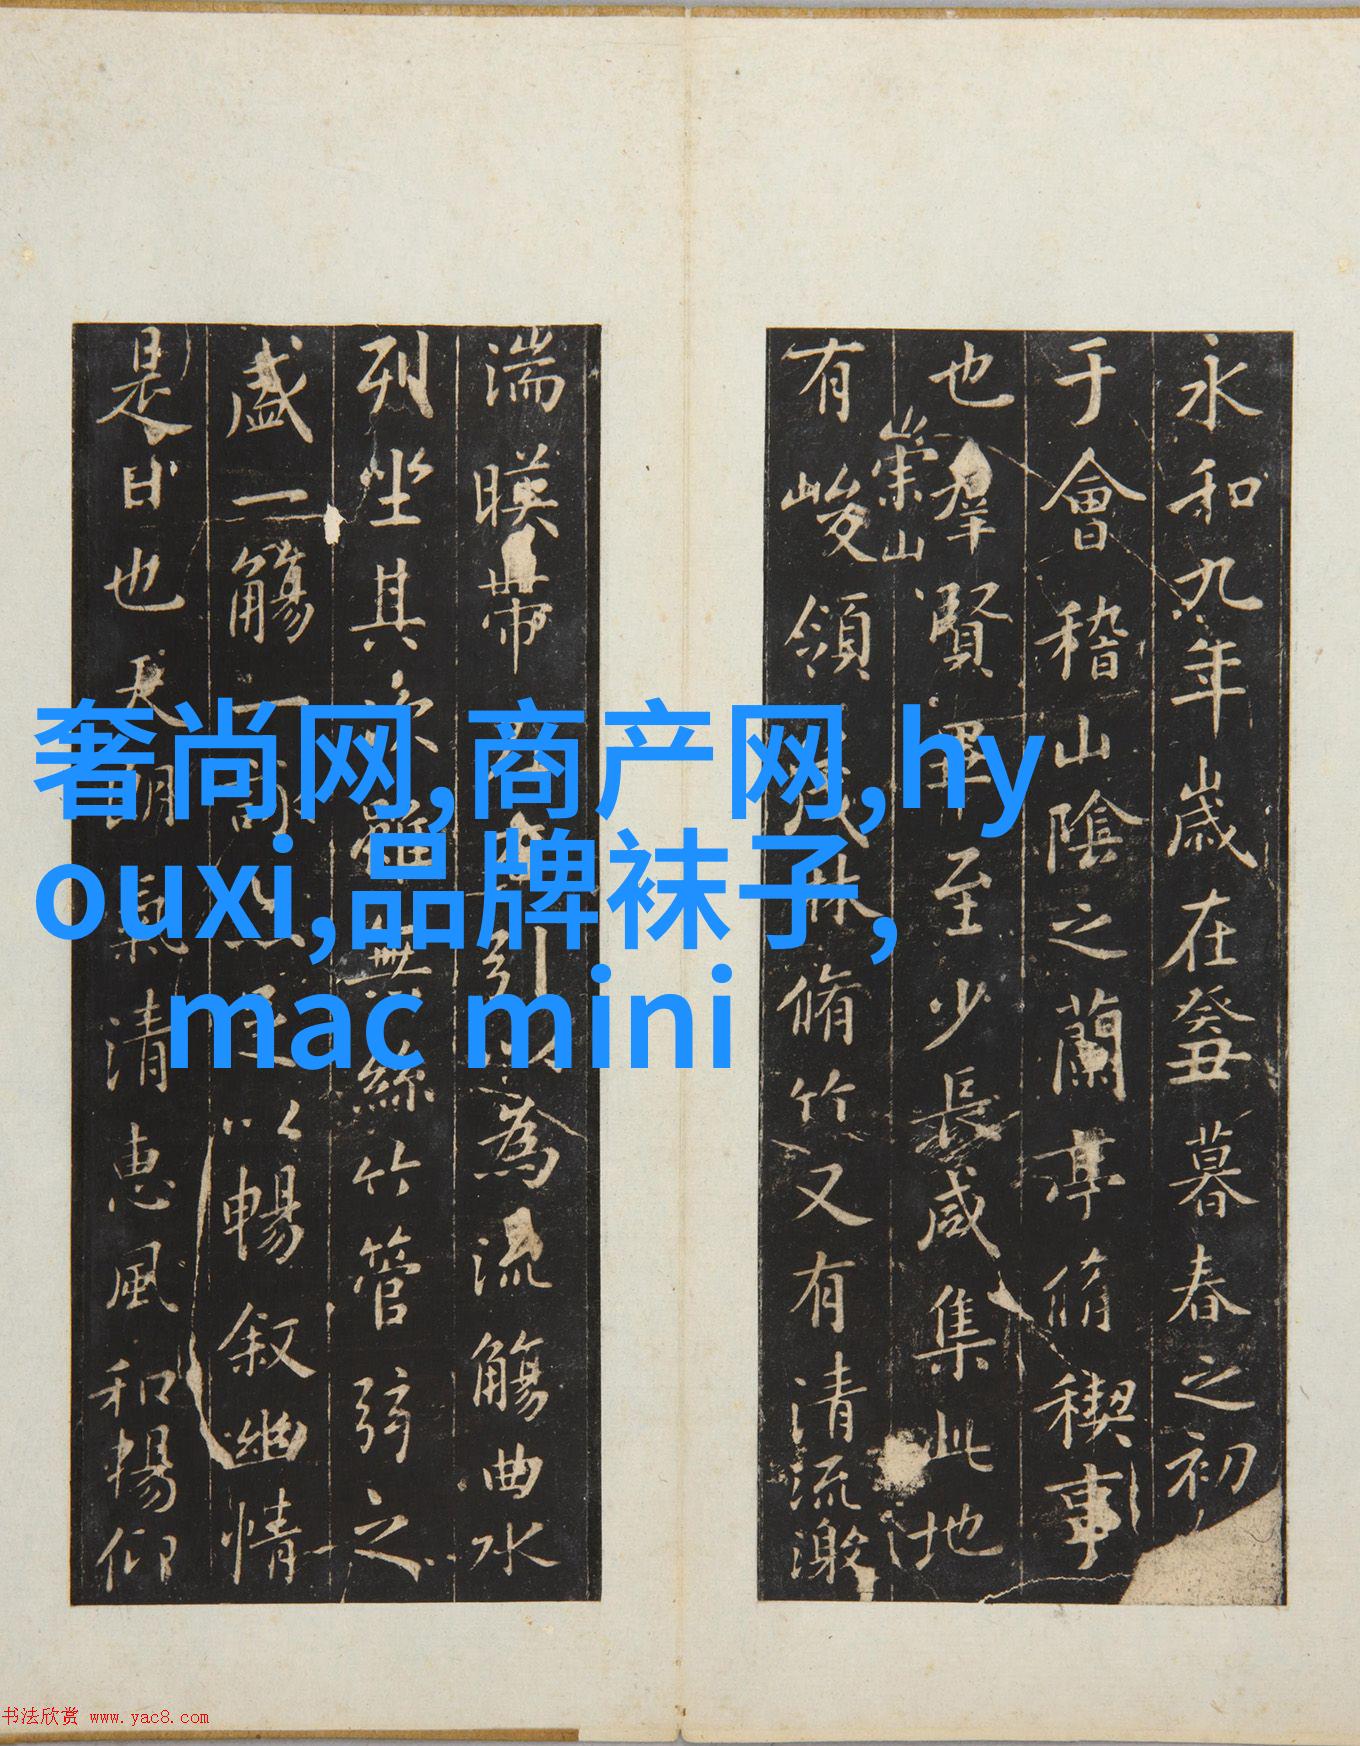 永和九年歲在癸丑暮春之初
于會稽山陰之蘭亭脩禊事
也羣賢畢至少長咸集此地
崇山
有峻領茂林脩竹又有清流激
湍暎帶引為流觴曲水
列坐其次雖無絲竹管弦之
盛一觴一詠足以暢叙幽情
是日也天朗氣清惠風和暢仰
奢尚网,商产网,hy
ouxi,品牌袜子,
mac mini
书法欣赏 www.yac8.com